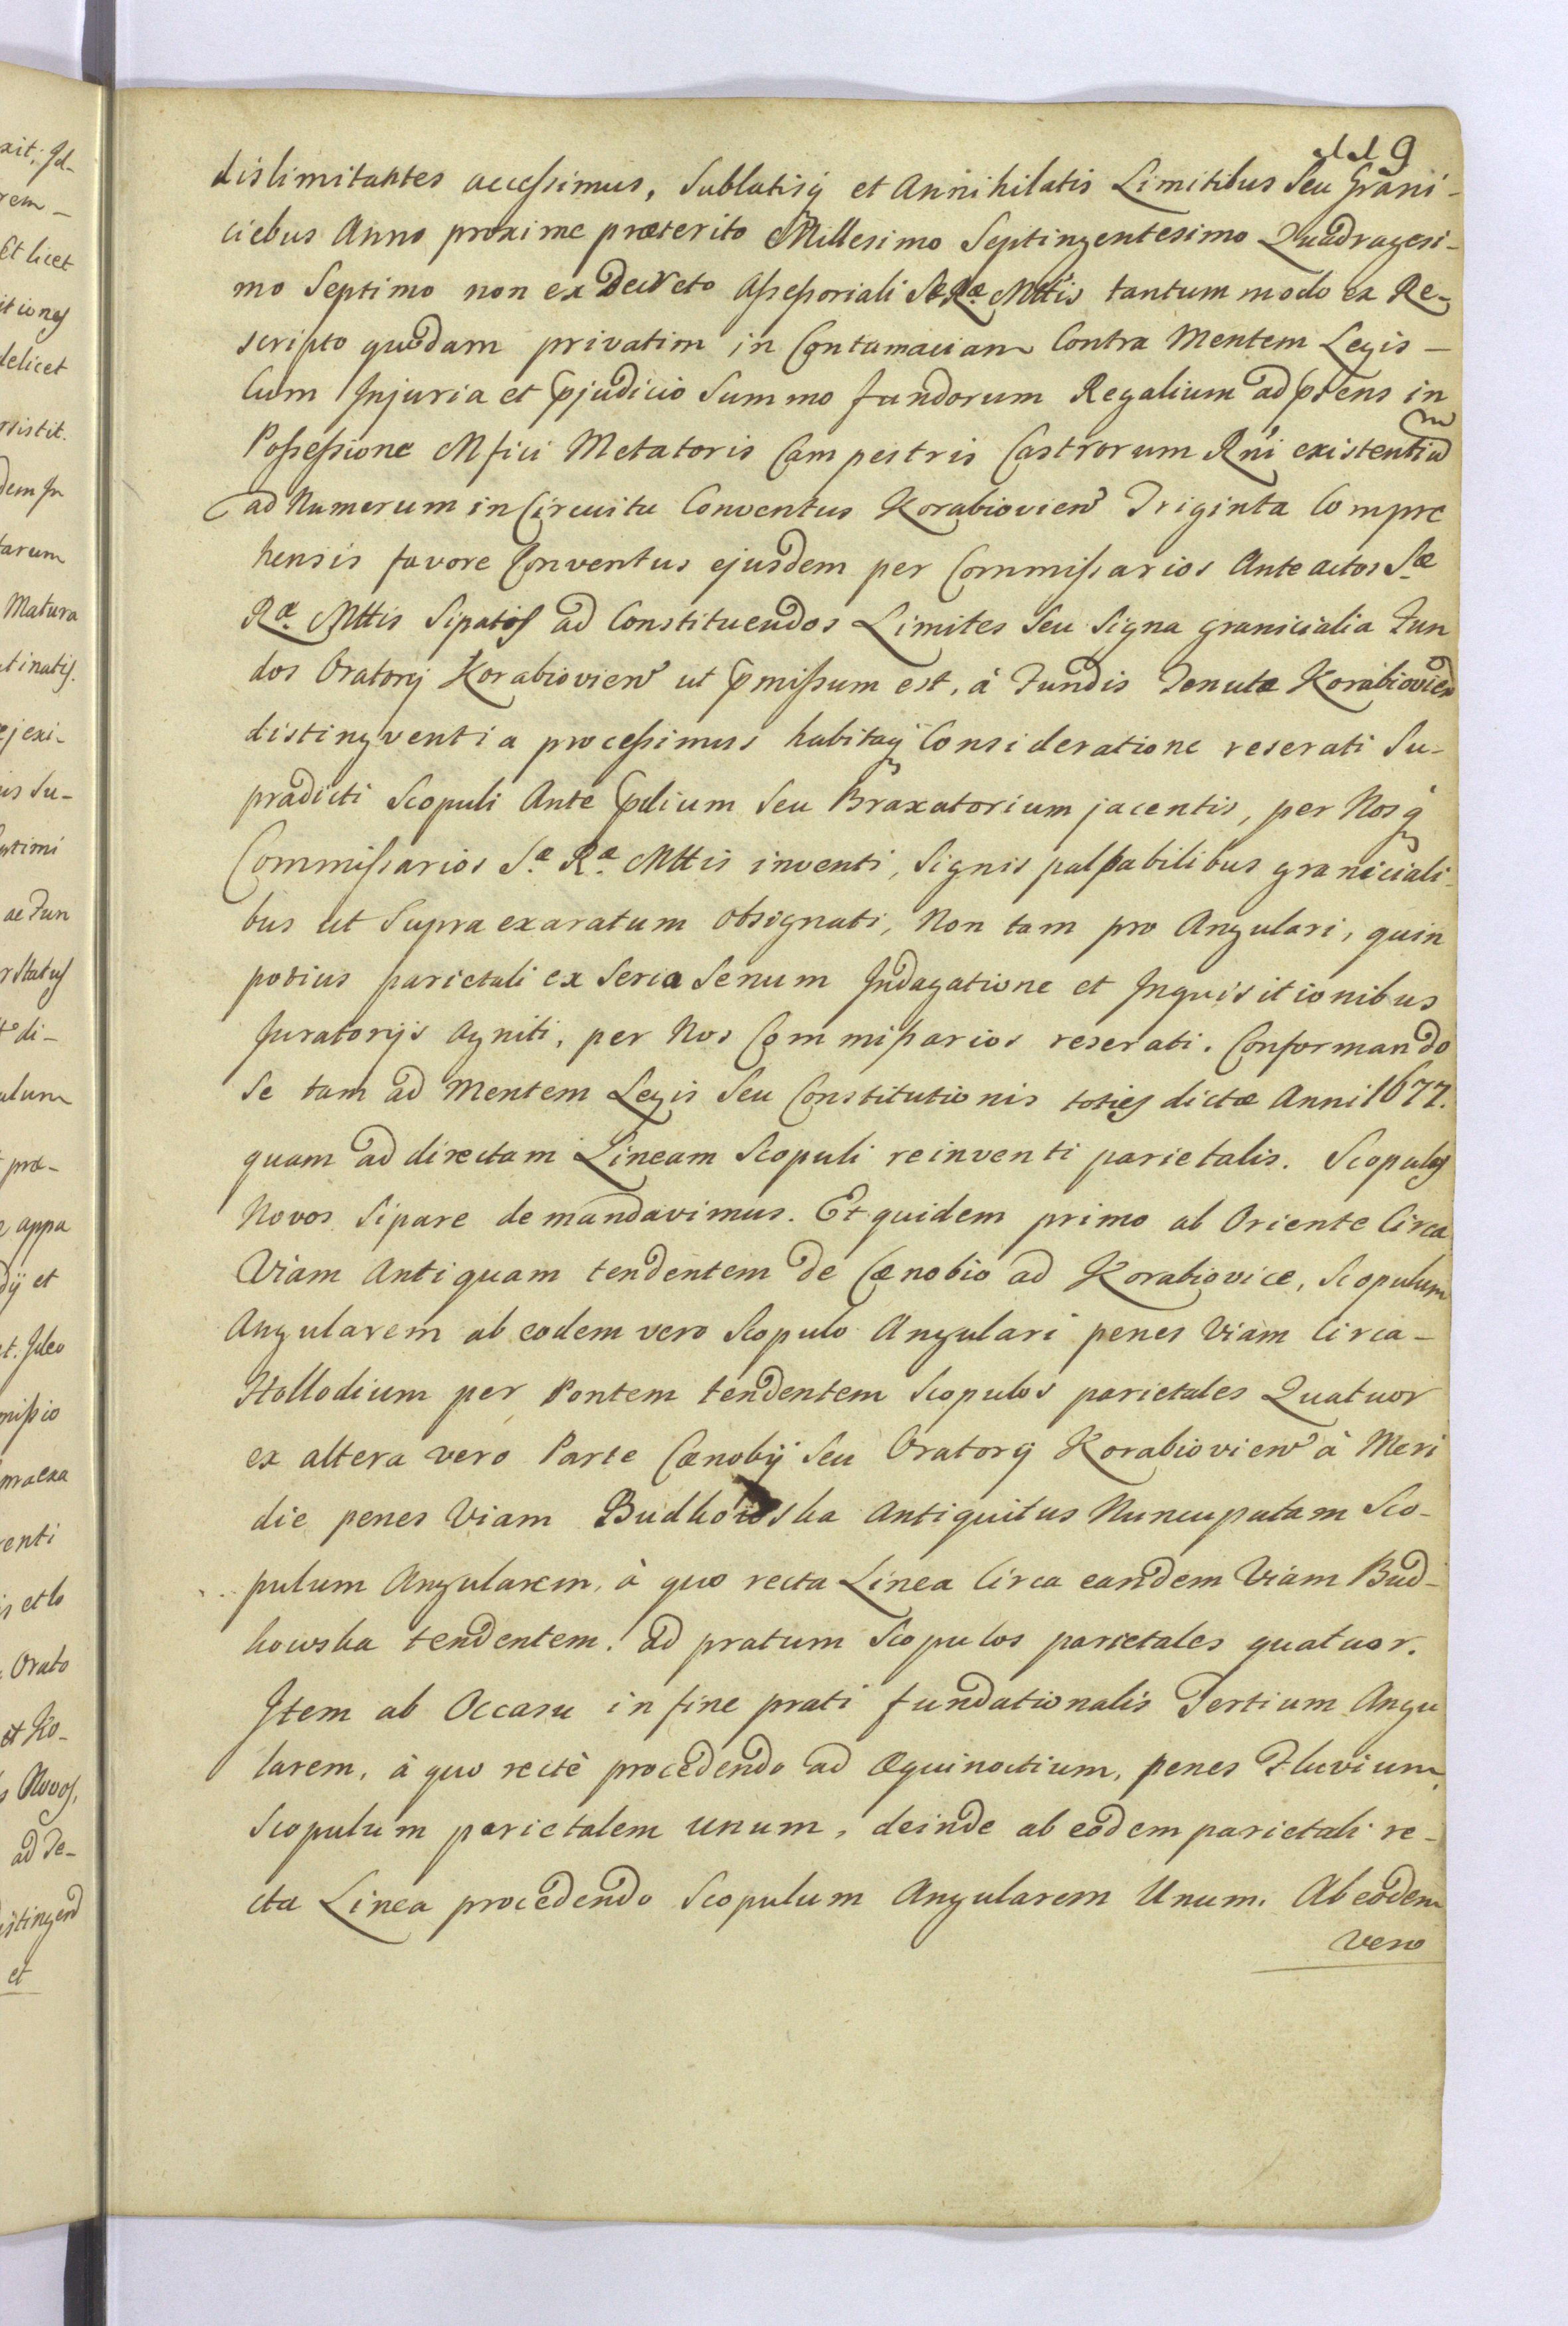 9
dislimitantes accessimus, Sublatisq et Annihilatis Limitibus Seu Grani-
ciebus Anno proxime præterito Millesimo Septingentesimo Quadragesi-
mo Septimo non ex Decreto Assessoriali Sæ Ræ Mttis tantum modo ex Re-
scripto quodam privatim in Contumaciam Contra Mentem Legis -
Cum Injuria et pjudicio Summo fundorum Regalium ad pñens in
Possessione Mfici Metatoris Campestris Castrorum Rni existentium
ad Numerum in Circuitu Conventus Korabioview Triginta Compre
hensis favore Conventus ejusdem per Commissarios Ante actos Sæ
Ræ. Mttis Sipatos ad Constituendos Limites Seu Signa granicialia Fun
dos Oratorij Korabioview ut pmissum est, à Fundis Tenutæ Korabioview
distingventia processimus habitaq Consideratione reserati Su-
pradicti Scopuli Ante pdium Seu Braxatorium jacentis, per Nosq
Commissarios Sæ Ræ Mttis inventi, Signis palpabilibus graniciali-
bus ut Supra exaratum obsignati, Non tam pro Angulari, quin
potius parietali ex Seria Senum Indagatione et Inquisitionibus
Juratorijs agniti, per Nos Commissarios reserati. Conformando
Se tam ad Mentem Legis Seu Constitutionis toties dictæ Anni 1677.
quam ad directam Lineam Scopuli reinventi parietalis. Scopulos
Novos Sipare demandavimus. Et quidem primo ab Oriente Circa
Viam Antiquam tendentem de Cænobio ad Korabiovice, Scopulum
Angularem ab eodem vero Scopulo Angulari penes Viam Circa -
Hollodium per Pontem tendentem Scopulos parietales Quatuor
ex altera vero Parte Cænobij Seu Oratorij Korabioview à Meri
die penes Viam Budkowska Antiquitus Nuncupatam Sco-
pulum Angularem, à quo recta Linea Circa eandem Viam Bud-
kowska tendentem. ad pratum Scopulos parietales quatuor.
Item ab Occasu in fine prati fundationalis Tertium Angu
larem, à quo rectè procedendo ad Æquinoctium, penes Fluvium,
Scopulum parietalem unum, deinde ab eodem parietali re-
cta Linea procedendo Scopulum Angularem Unum. Ab eodem
vero